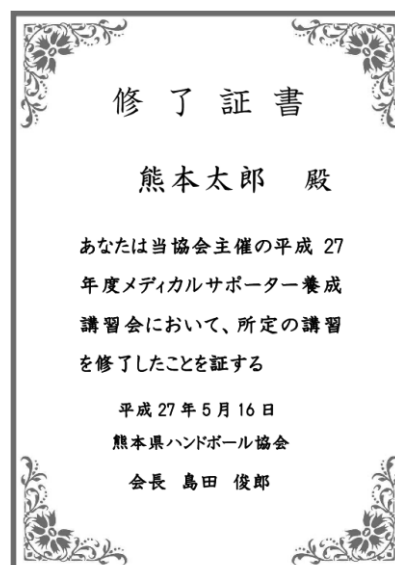 修了証書
熊本太郎　殿
あなたは当協会主催の平成 27
年度メディカルサポーター養成
講習会において、所定の講習
を修了したことを証する
平成 27 年 5 月 16 日
熊本県ハンドボール協会
会長　島田　俊郎